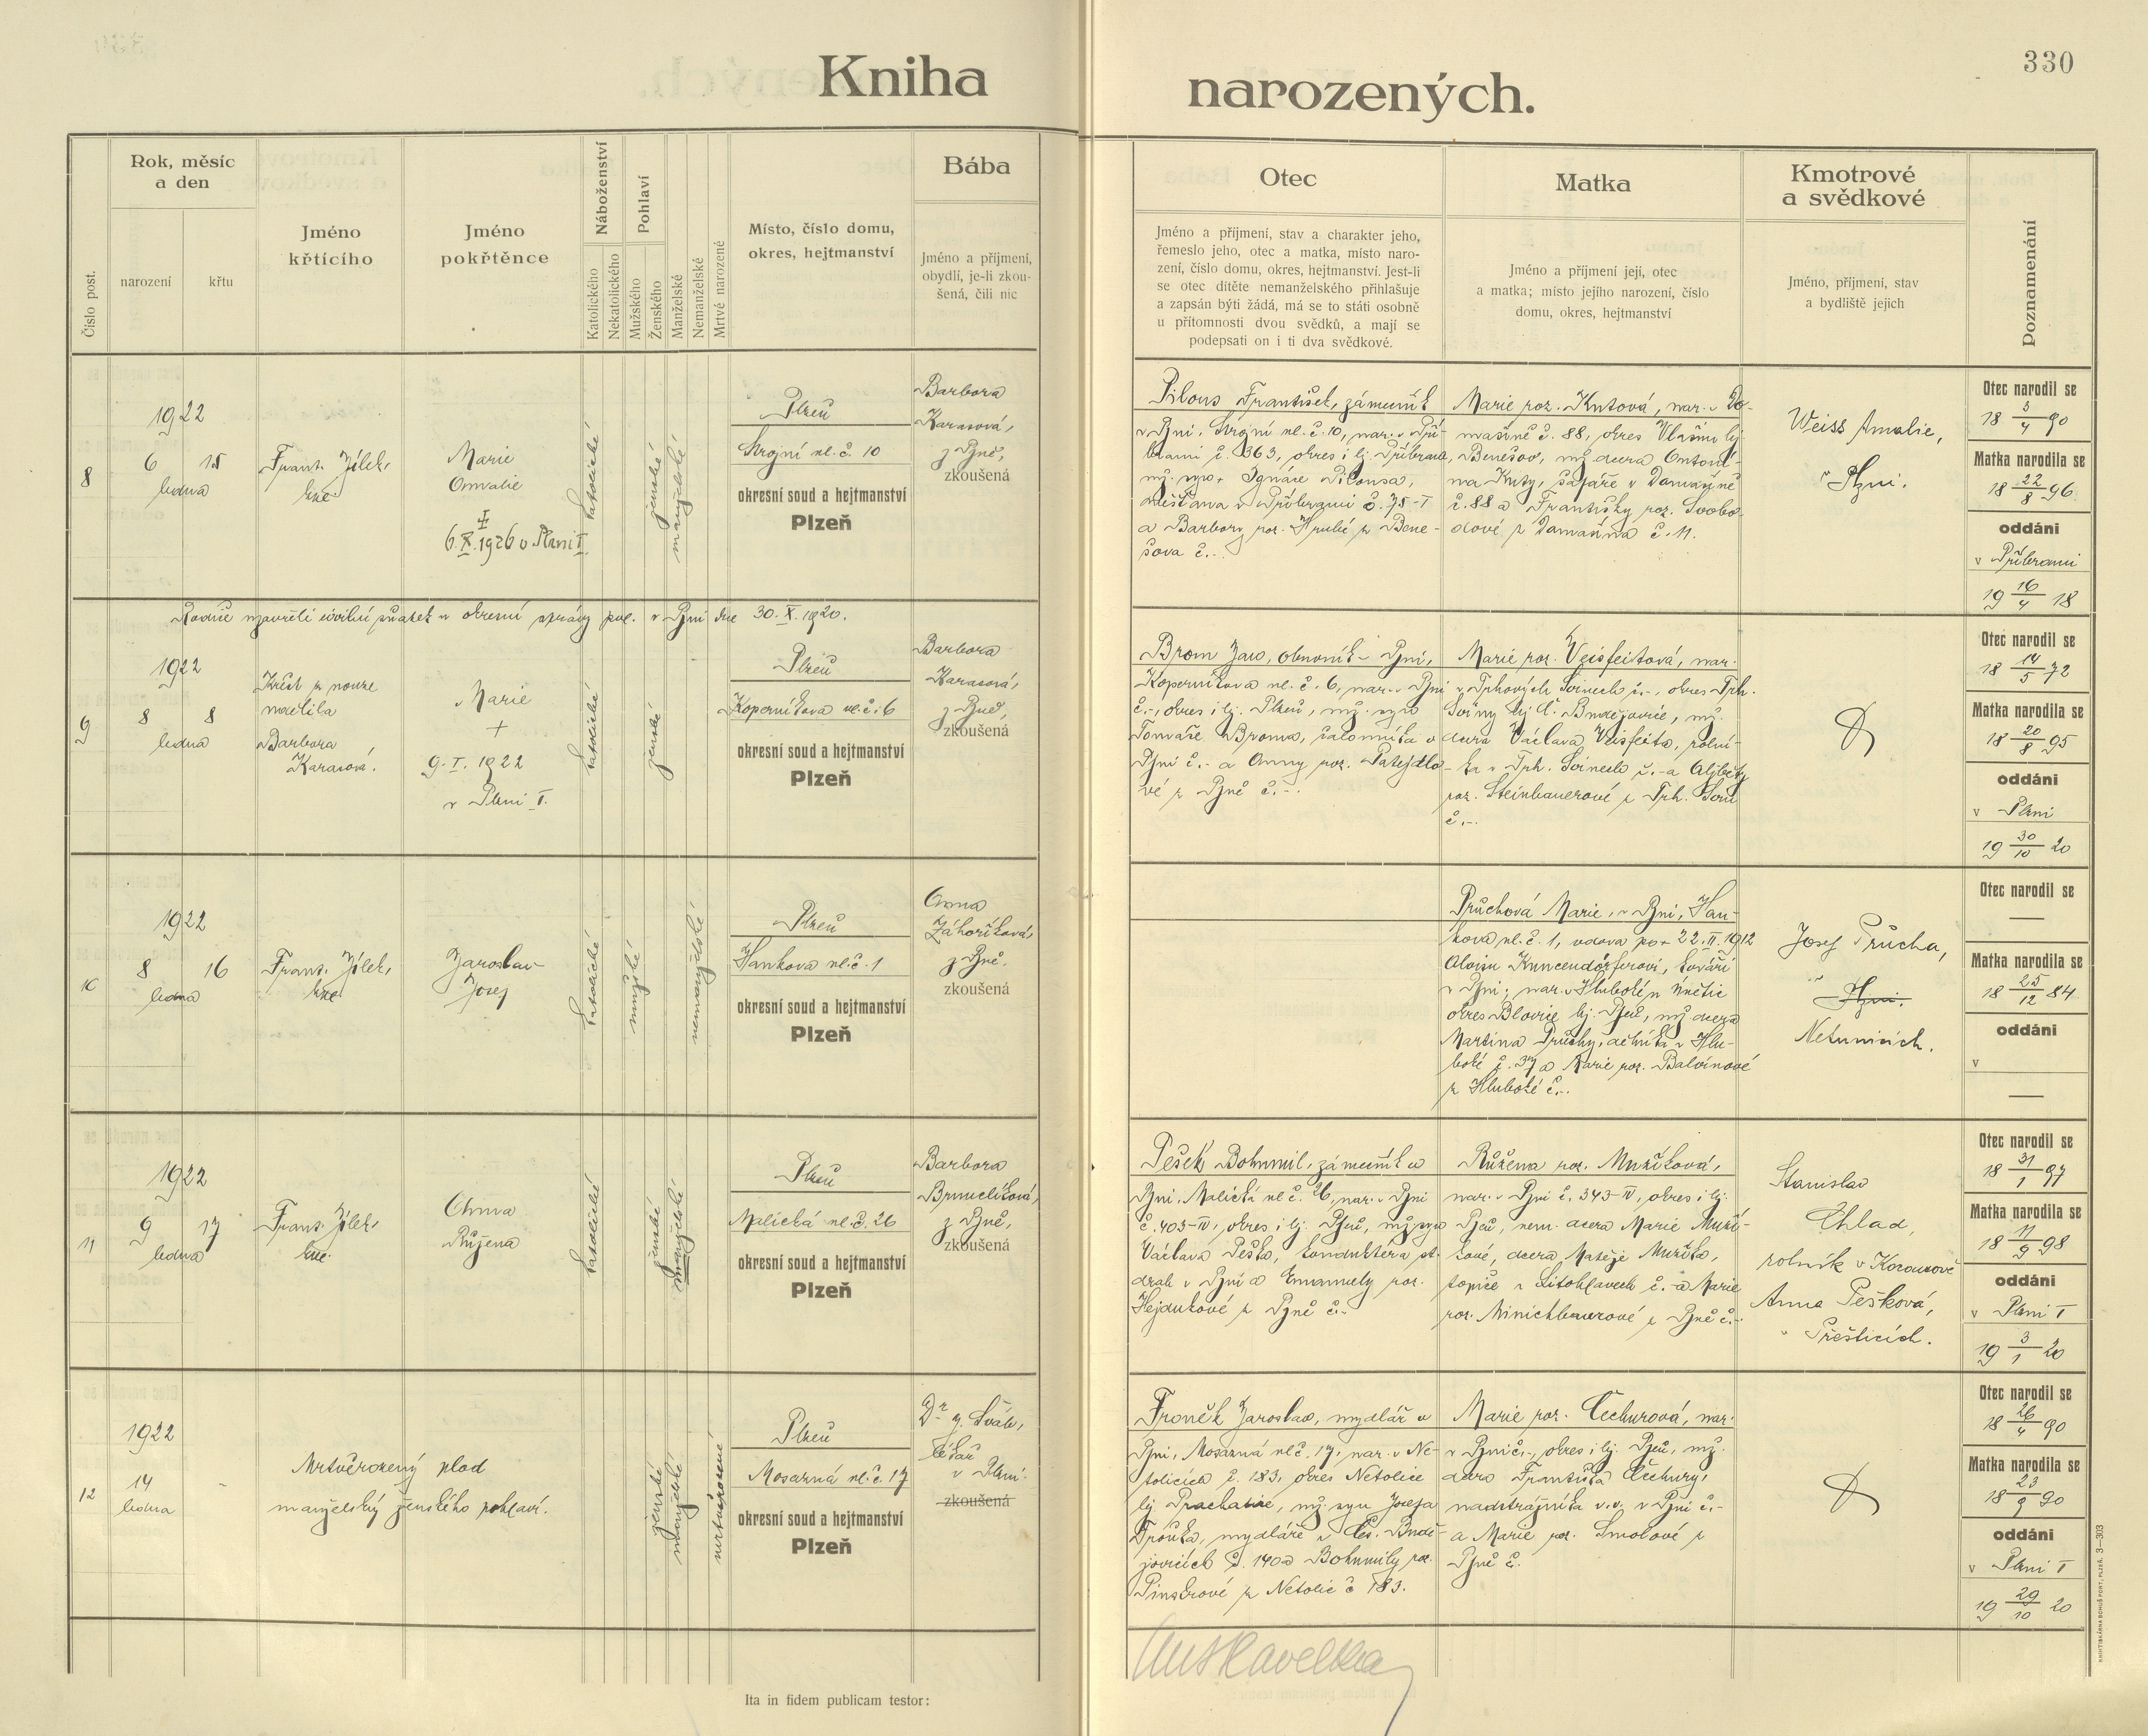 330
Kniha narozených.
Číslo post.
Rok, měsíc
a den
narození
křtu
Jméno
křtícího
Jméno
pokřtěnce
Náboženství
Katolického
Nekatolického
Pohlaví
Mužského
Ženského
Manželské
Nemanželské
Mrtvé narozené
Místo, číslo domu,
okres, hejtmanství
Bába
Jméno a příjmení,
obydlí, je-li zkou-
šená, čili nic
Otec
Jméno a příjmení, stav a charakter jeho,
řemeslo jeho, otec a matka, místo naro-
zení, číslo domu, okres, hejtmanství. Jest-li
se otec dítěte nemanželského přihlašuje
a zapsán býti žádá, má se to státi osobně
u přítomnosti dvou svědků, a mají se
podepsati on i ti dva svědkové.
Matka
Jméno a příjmení její, otec
a matka; místo jejího narození, číslo
domu, okres, hejtmanství
Kmotrové
a svědkové
Jméno, příjmení, stav
a bydliště jejich
Poznamenání
8
1922
6 15
ledna
Frant. Jílek,
kne.
Marie
Amalie
6.X.1926 v Plzni I.
katolické
ženské
manželské
Plzeň
Strojní ul. č. 10
okresní soud a hejtmanství
Plzeň
Barbora
Karasová,
z Plzně,
zkoušená
Pilous František, zámečník
v Plzni, Strojní ul. č. 10, nar. v Pří-
brami č. 363, okres i hj. Příbram,
mž. syn Ignáce Pilousa,
měšťana v Příbrami č. 78-I
a Barbory roz. Hrubé z Bene-
šova č.-.
Marie roz. Kutová, nar. v Do-
mašíně č. 88, okres Vlašim hj.
Benešov, mž. dcera Antoní-
na Kuty, šafáře v Domašíně
č. 88 a Františky roz. Svobo-
dové z Domašína č. 11.
Weiss Amalie,
v Plzni.
Otec narodil se
18 3/4 90
Matka narodila se
18 22/8 96
oddáni
v Příbrami
19 16/4 18
Rodiče uzavřeli civilní sňatek u okresní správy pol. v Plzni dne 30. X. 1920.
9
1922
8 8
ledna
Křest z nouze
udělila
Barbora
Karasová.
Marie
+
9. I. 1922
v Plzni I.
katolické
ženské
Plzeň
Koperníkova ul. č. 6
okresní soud a hejtmanství
Plzeň
Barbora
Karasová,
z Plzně,
zkoušená
Brom Jan, obuvník v Plzni,
Koperníkova ul. č. 6, nar. v Plzni
č.-, okres i hj. Plzeň, mž. syn
Tomáše Broma, čalouníka v
Plzni č.- a Anny roz. Patejdlo-
vé z Plzně č.-.
Marie roz. Veisfeitová, nar.
v Trhových Svinech č.-, okres Trh.
Sviny hj. Č. Budějovice, mž.
dcera Václava Veisfeita, rolní-
ka v Trh. Svinech č.- a Alžběty
roz. Steinbauerové z Trh. Svin
č.-.
Otec narodil se
18 14/5 72
Matka narodila se
18 20/8 95
oddáni
v Plzni
19 30/10 20
10
1922
8 16
ledna
Frant. Jílek,
kne.
Jaroslav
Josef
katolické
mužské
nemanželské
Plzeň
Hankova ul. č. 1
okresní soud a hejtmanství
Plzeň
Anna
Záhoříková,
z Plzně,
zkoušená
Průchová Marie, v Plzni, Han-
kova ul. č. 1, vdova po + 22. II. 1912
Aloisu Kuncendörferovi, kováři
v Plzni; nar. v Hluboké u Únětic
okres Blovice hj. Plzeň, mž. dcera
Martina Průchy, dělníka v Hlu-
boké č. 37 a Marie roz. Balvínové
z Hluboké č.-.
Josef Průcha,
v Plzni.
Netunicích.
Otec narodil se
—
Matka narodila se
18 25/12 84
oddáni
v
—
11
1922
9 17
ledna
Frant. Jílek,
kne.
Anna
Růžena
katolické
ženské
manželské
Plzeň
Malická ul. č. 26
okresní soud a hejtmanství
Plzeň
Barbora
Brunclíková,
z Plzně,
zkoušená
Pešek Bohumil, zámečník v
Plzni, Malická ul. č. 26, nar. v Plzni
č. 403-IV, okres i hj. Plzeň, mž. syn
Václava Peška, konduktéra st.
drah v Plzni a Emanuely roz.
Hejdukové z Plzně č.-
Růžena roz. Mužíková,
nar. v Plzni č. 343-IV, okres i hj.
Plzeň, nem. dcera Marie Muží-
kové, dcera Matěje Mužíka,
topiče v Litohlavech č.- a Marie
roz. Minichbauerové z Plzně č.-.
Stanislav
Chlad,
rolník v Kozousově
Anna Pešková,
v Přešticích.
Otec narodil se
18 31/1 97
Matka narodila se
18 11/9 98
oddáni
v Plzni I
19 3/1 20
12
1922
14
ledna
-
Mrtvěrozený plod
manželský ženského pohlaví.
ženské
manželské
mrtvěrozené
Plzeň
Mosazná ul. č. 17
okresní soud a hejtmanství
Plzeň
Dr. J. Šváb,
lékař
v Plzni.
zkoušená
Froněk Jaroslav, mydlář v
Plzni, Mosazná ul. č. 17, nar. v Ne-
tolicích č. 183, okres Netolice
hj. Prachatice, mž. syn Josefa
Froňka, mydláře v Čes. Budě-
jovicích č. 140 a Bohumily roz.
Pinskrové z Netolic č. 183.
Marie roz. Čechurová, nar.
v Plzni č.-, okres i hj. Plzeň, mž.
dcera Františka Čechury,
nadstrážníka v.v. v Plzni č.-
a Marie roz. Smolové z
Plzně č.
Otec narodil se
18 26/4 90
Matka narodila se
18 23/9 90
oddáni
v Plzni I
19 29/10 20
Ita in fidem publicam testor:
KNIHTISKÁRNA BOHUŠ PORT, PLZEŇ. 3—303